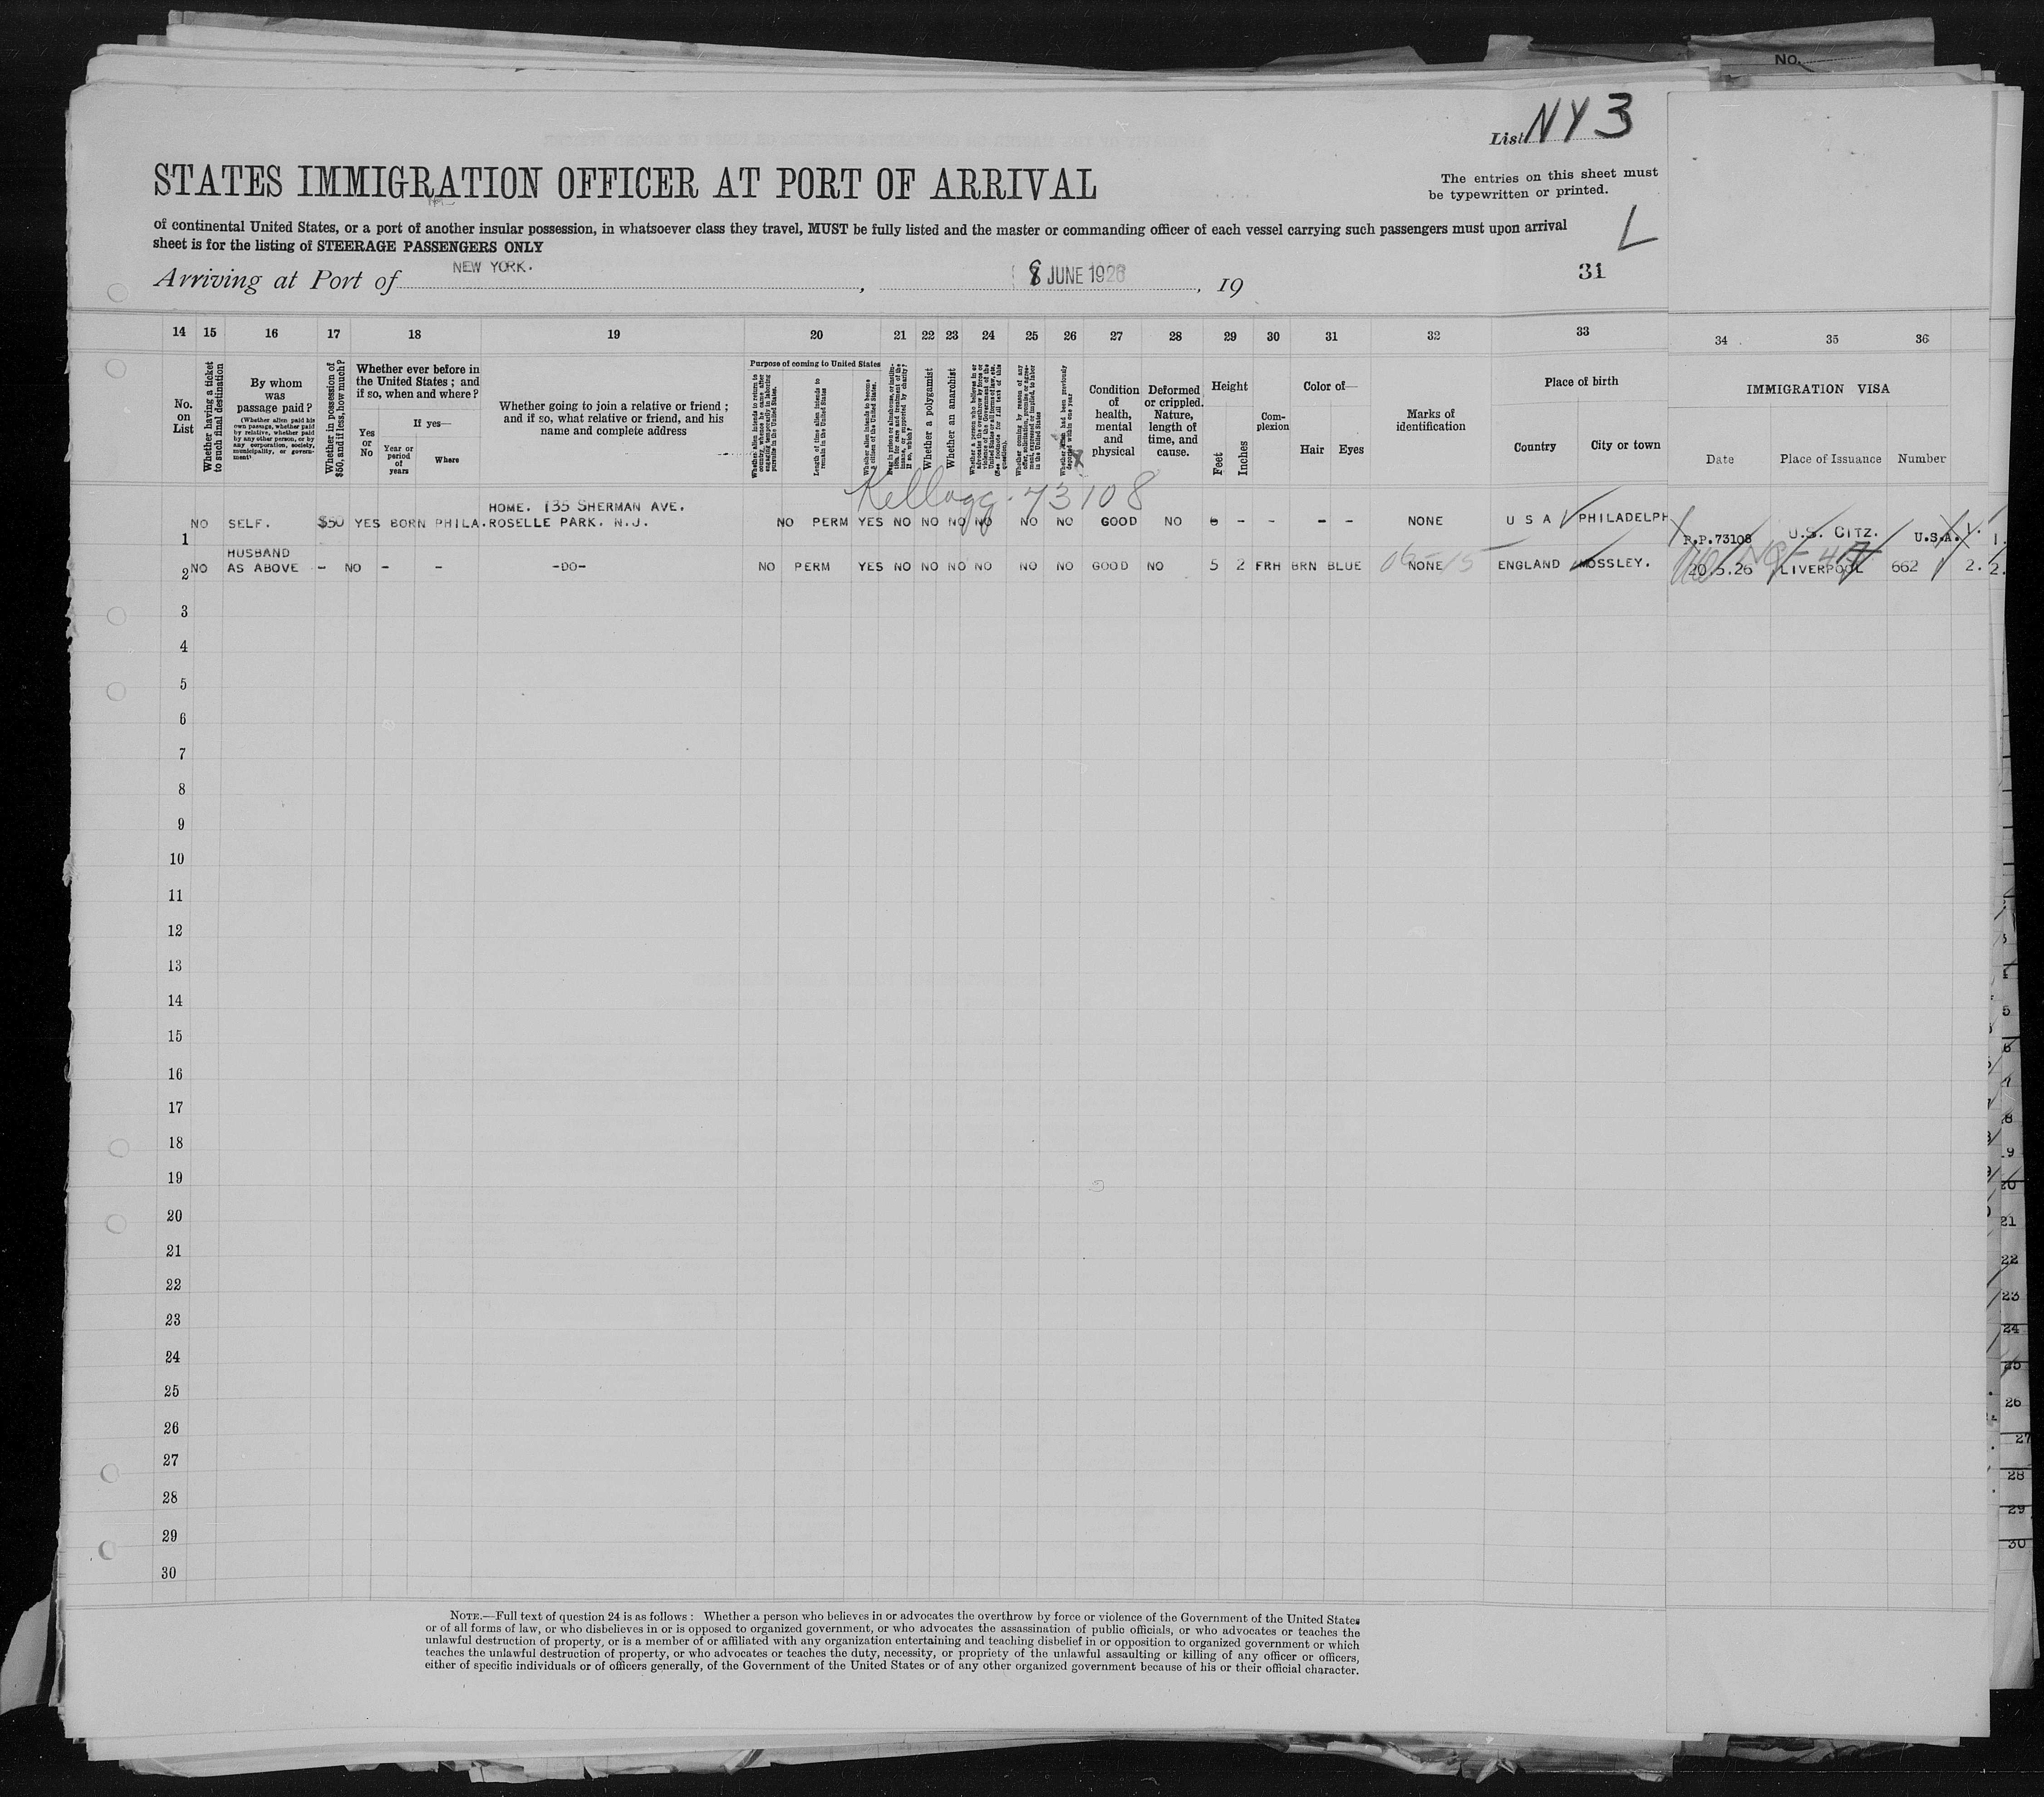 No.
List NY 3
STATES IMMIGRATION OFFICER AT PORT OF ARRIVAL
The entries on this sheet must
be typewritten or printed.
of continental United States, or a port of another insular possession, in whatsoever class they travel, MUST be fully listed and the master or commanding officer of each vessel carrying such passengers must upon arrival
sheet is for the listing of STEERAGE PASSENGERS ONLY
L
Arriving at Port of NEW YORK. , 8 JUNE 1926 , 19
31
14 15 16 17 18 19 20 21 22 23 24 25 26 27 28 29 30 31 32 33 34 35 36
No. on List
Whether having a ticket to such final destination
By whom was passage paid?
(Whether alien paid his own passage, whether paid by relative, whether paid by any other person, or by any corporation, society, municipality, or government)
Whether in possession of $50, and if less, how much?
Whether ever before in the United States; and if so, when and where?
Yes or No
If yes—
Year or period of years
Where
Whether going to join a relative or friend; and if so, what relative or friend, and his name and complete address
Purpose of coming to United States
Whether alien intends to return to country whence he came after engaging temporarily in laboring pursuits in the United States.
Length of time alien intends to remain in the United States
Whether alien intends to become a citizen of the United States.
Whether a polygamist
Whether an anarchist
Whether coming by reason of any offer, solicitation, promise or agreement, expressed or implied, to labor in the United States
Condition of health, mental and physical
Deformed or crippled. Nature, length of time, and cause.
Height
Feet
Inches
Complexion
Color of—
Hair
Eyes
Marks of identification
Place of birth
Country
City or town
IMMIGRATION VISA
Date
Place of Issuance
Number
Kellogg. 73108
HOME. 135 SHERMAN AVE.
1 NO SELF. $50 YES BORN PHILA. ROSELLE PARK. N.J. NO PERM YES NO NO NO NO NO NO GOOD NO - - - - NONE U S A PHILADELPH P.P.73108 U.S. CITZ. U.S.A. 1. 1.
HUSBAND
2 NO AS ABOVE - NO - - -DO- NO PERM YES NO NO NO NO NO NO GOOD NO 5 2 FRH BRN BLUE NONE ENGLAND MOSSLEY. 20.5.26 LIVERPOOL 662 2. 2.
3
4
5
6
7
8
9
10
11
12
13
14
15
16
17
18
19
20
21
22
23
24
25
26
27
28
29
30
NOTE.—Full text of question 24 is as follows: Whether a person who believes in or advocates the overthrow by force or violence of the Government of the United States
or of all forms of law, or who disbelieves in or is opposed to organized government, or who advocates the assassination of public officials, or who advocates or teaches the
unlawful destruction of property, or is a member of or affiliated with any organization entertaining and teaching disbelief in or opposition to organized government or which
teaches the unlawful destruction of property, or who advocates or teaches the duty, necessity, or propriety of the unlawful assaulting or killing of any officer or officers,
either of specific individuals or of officers generally, of the Government of the United States or of any other organized government because of his or their official character.